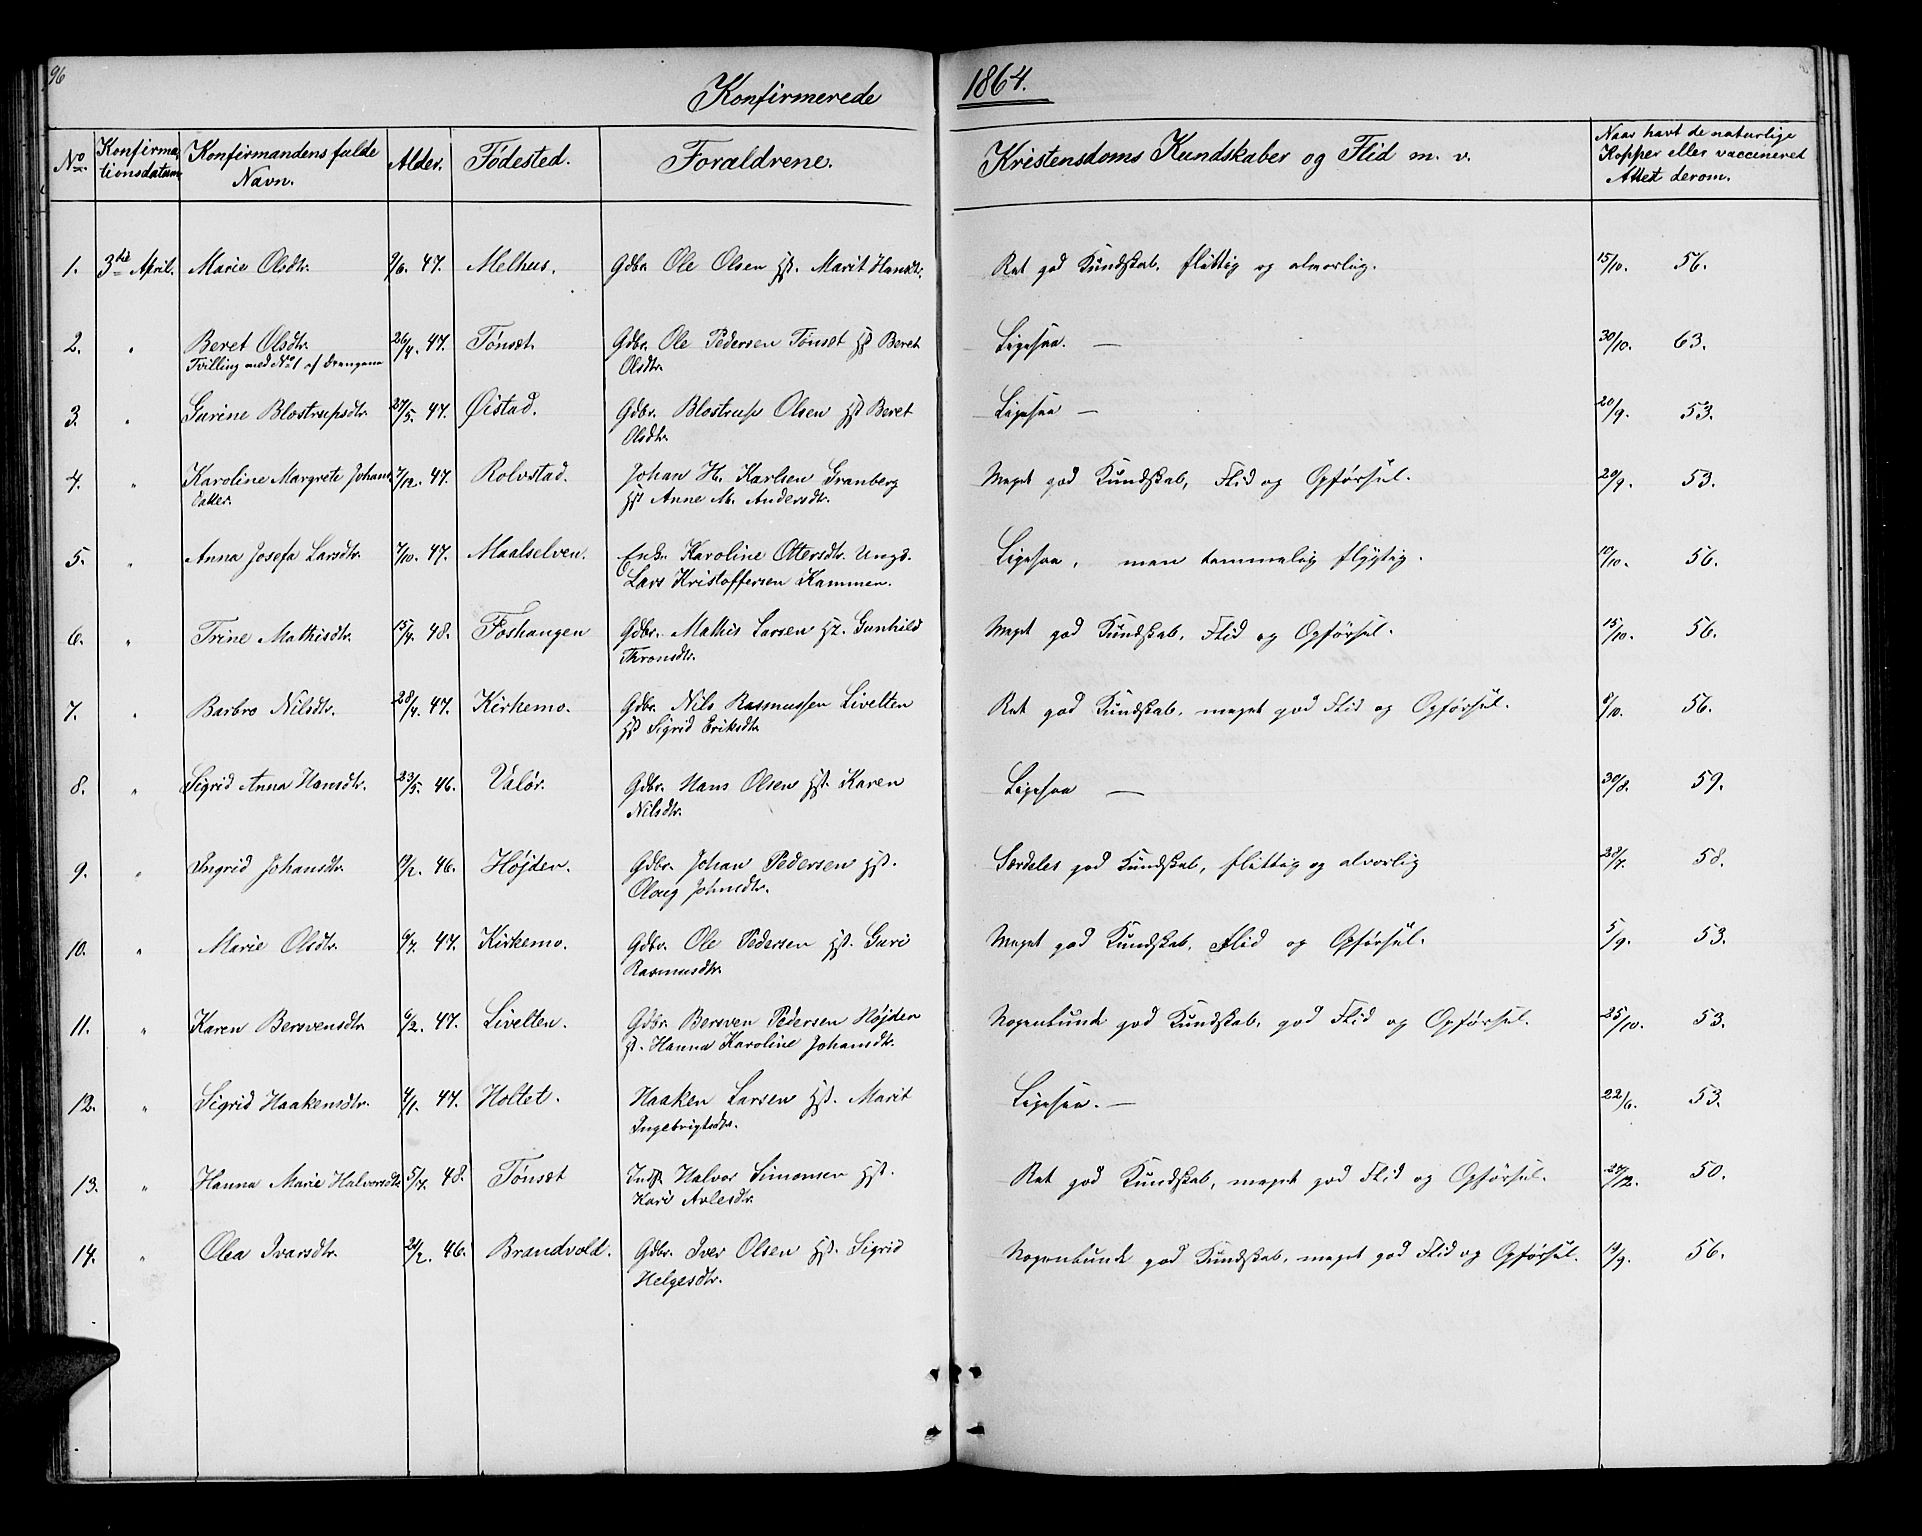 96
Konfirmerede 1864.
No. Konfirma, Konfirmandens fulde Alder. Fødested. Forældrene. Kristensdoms Kundskaber og Flid m. v. Naar havt de naturlige
tionsdatum Navn. Kopper eller vaccineret
Attest derom.
1. 3die April. Marie Olsdtr. 9/6. 47. Melhus. Gdbr. Ole Olsen Hst. Marit Hansdtr. Ret god Kundskab, flittig og alvorlig. 15/10. 56.
2. " Beret Olsdtr. 26/4. 47. Tønset. Gdbr. Ole Pedersen Tønset Hst Beret Ligesaa. — 30/10. 63.
Tvilling med No 1 af Drengene Olsdtr.
3. " Gurine Blostrupsdtr. 27/5. 47. Øistad. Gdbr. Blostrup Olsen Hst Beret Ligesaa — 20/9. 53.
Olsdtr.
4. " Karoline Margrete Johans 7/12. 47. Rolvstad. Johan H. Karlsen Granberg Meget god Kundskab, Flid og Opførsel. 20/9. 53.
datter. Hst Anne M. Andersdtr.
5. " Anna Josefa Larsdtr. 7/10. 47. Maalselven. Enke. Karoline Ottersdtr. Ungk. Ligesaa, men temmelig flygtig. 10/10. 56.
Lars Kristoffersen Kammen.
6. " Trine Mathisdtr. 15/4. 48. Foshaugen Gdbr. Mathis Larsen Hst. Gunhild Meget god Kundskab, Flid og Opførsel. 15/10. 56.
Thronsdtr.
7. " Barbro Nilsdtr. 28/4. 47. Kirkemo. Gdbr. Nils Rasmussen Livelten Ret god Kundskab, meget god Flid og Opførsel. 8/10. 56.
Hst Sigrid Eriksdtr.
8. " Sigrid Anna Hansdtr. 23/5. 46. Valør. Gdbr. Hans Olsen Hst. Karen Ligesaa — 30/8. 59.
Nilsdtr.
9. " Ingrid Johansdtr. 46. Højden. Gdbr. Johan Pedersen Hst. Særdeles god Kundskab, flittig og alvorlig 28/7. 58.
Olaug Johnsdtr.
10. " Marie Olsdtr. 6/7. 47. Kirkemo. Gdbr. Ole Pedersen Hst. Guri Meget god Kundskab, Flid og Opførsel. 5/9. 53.
Rasmusdtr.
11. " Karen Bersvensdtr. 6/2. 47. Livelten. Gdbr. Bersven Pedersen Højden Nogenlunde god Kundskab, god Flid og Opførsel. 25/10. 53.
Hst. Hanna Karoline Johansdtr.
12. " Sigrid Haakensdtr. 4/1. 47. Holtet. Haaken Larsen Hst. Marit Ligesaa. — 22/6. 53.
Ingebrigtsdtr.
13. " Hanna Marie Halvorsdtr. 5/7. 48. Tønset Indst. Halvor Simonsen Hst. Ret god Kundskab, meget god Flid og Opførsel. 27/12. 50.
Kari Avlesdtr.
14. " Olea Ivarsdtr. 21/2. 46. Brandvold. Gdbr. Iver Olsen Hst. Sigrid Nogenlunde god Kundskab, meget god Flid og Opførsel. 19/9. 56.
Helgesdtr.